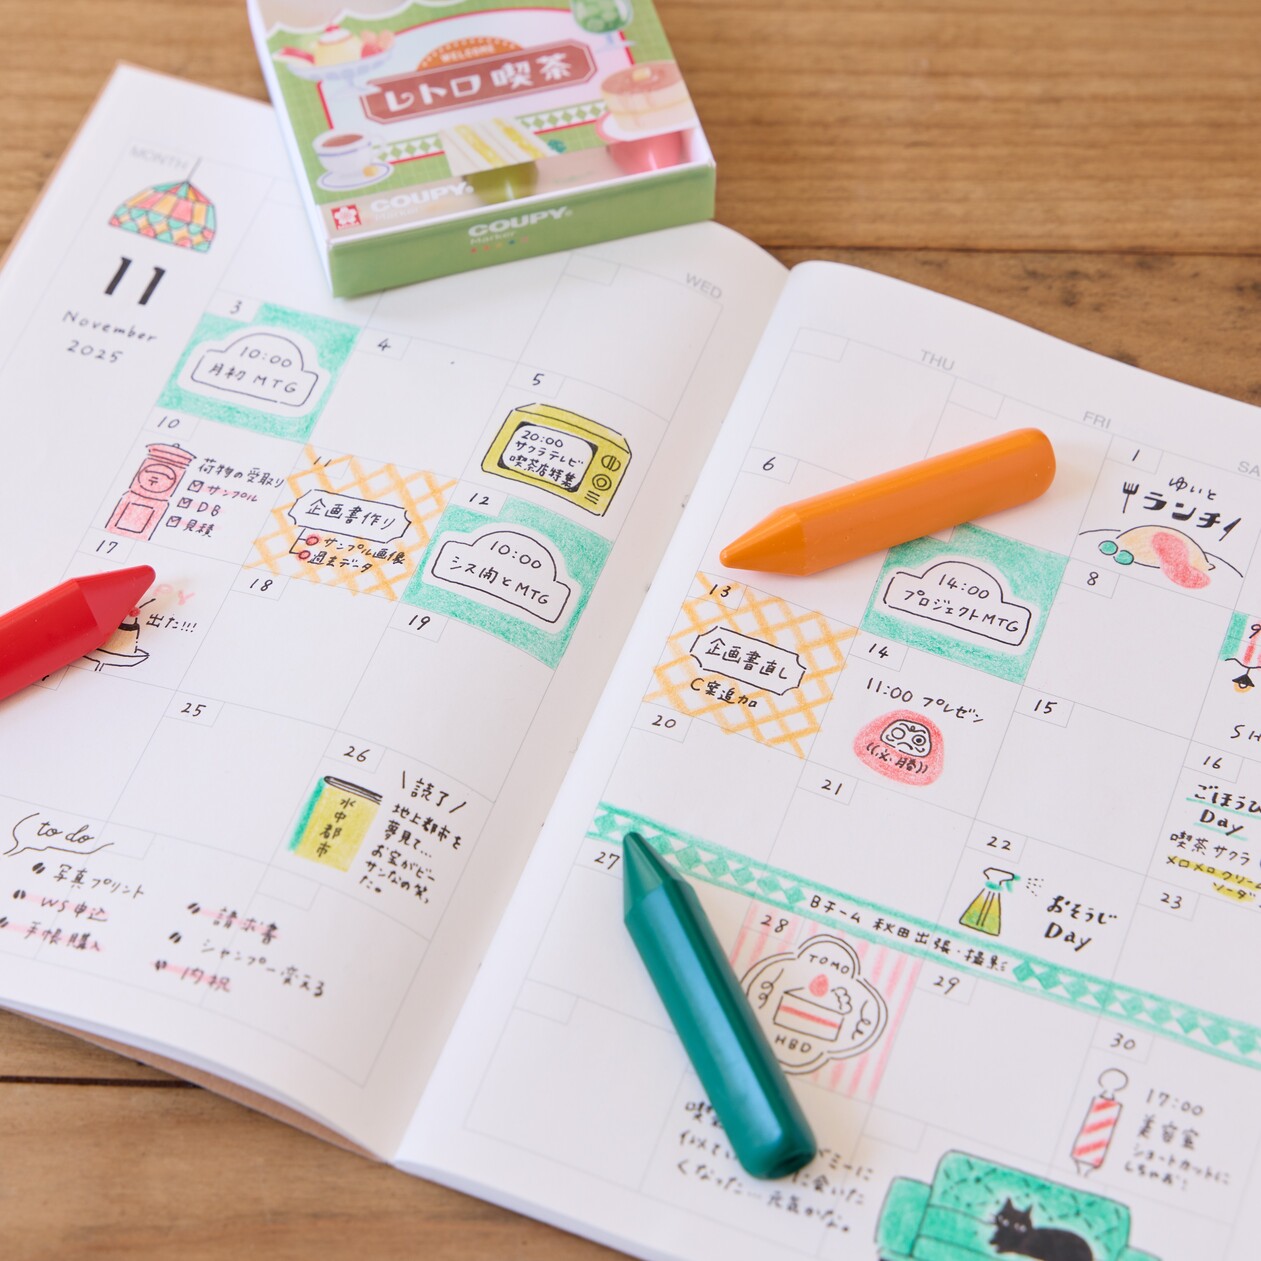 WELCOME
レトロ喫茶
COUPY
Marker
COUPY
Marker
MONTH
11
November
2025
WED
THU
FRI
SA
3
10:00
月初 MTG
4
5
20:00
サクラテレビ
喫茶店特集
6
1
ゆいと
ランチ
14:00
プロジェクトMTG
8
9
10
荷物の受取り
サンプル
DB
見積
11
企画書作り
サンプル画像
過去データ
12
10:00
シス開とMTG
13
企画書直し
C案追加
14
11:00 プレゼン
((必勝))
15
16
ごほうび
Day
喫茶サクラ
メロメロクリーム
ソーダ
SH
17
出た!!!
18
19
20
21
22
おそうじ
Day
23
25
26
水中都市
\読了/
地上都市を
夢見て…
お宝がビー
サンなの笑
た。
27
Bチーム 秋田出張・撮影
28
TOMO
HBD
29
30
17:00
美容室
ショートカットに
しちゃお!
to do
写真プリント
WS申込
手帳購入
請求書
シャンプー変える
内祝
喫
似てい
ミーに
に会いた
くなった…元気かな。